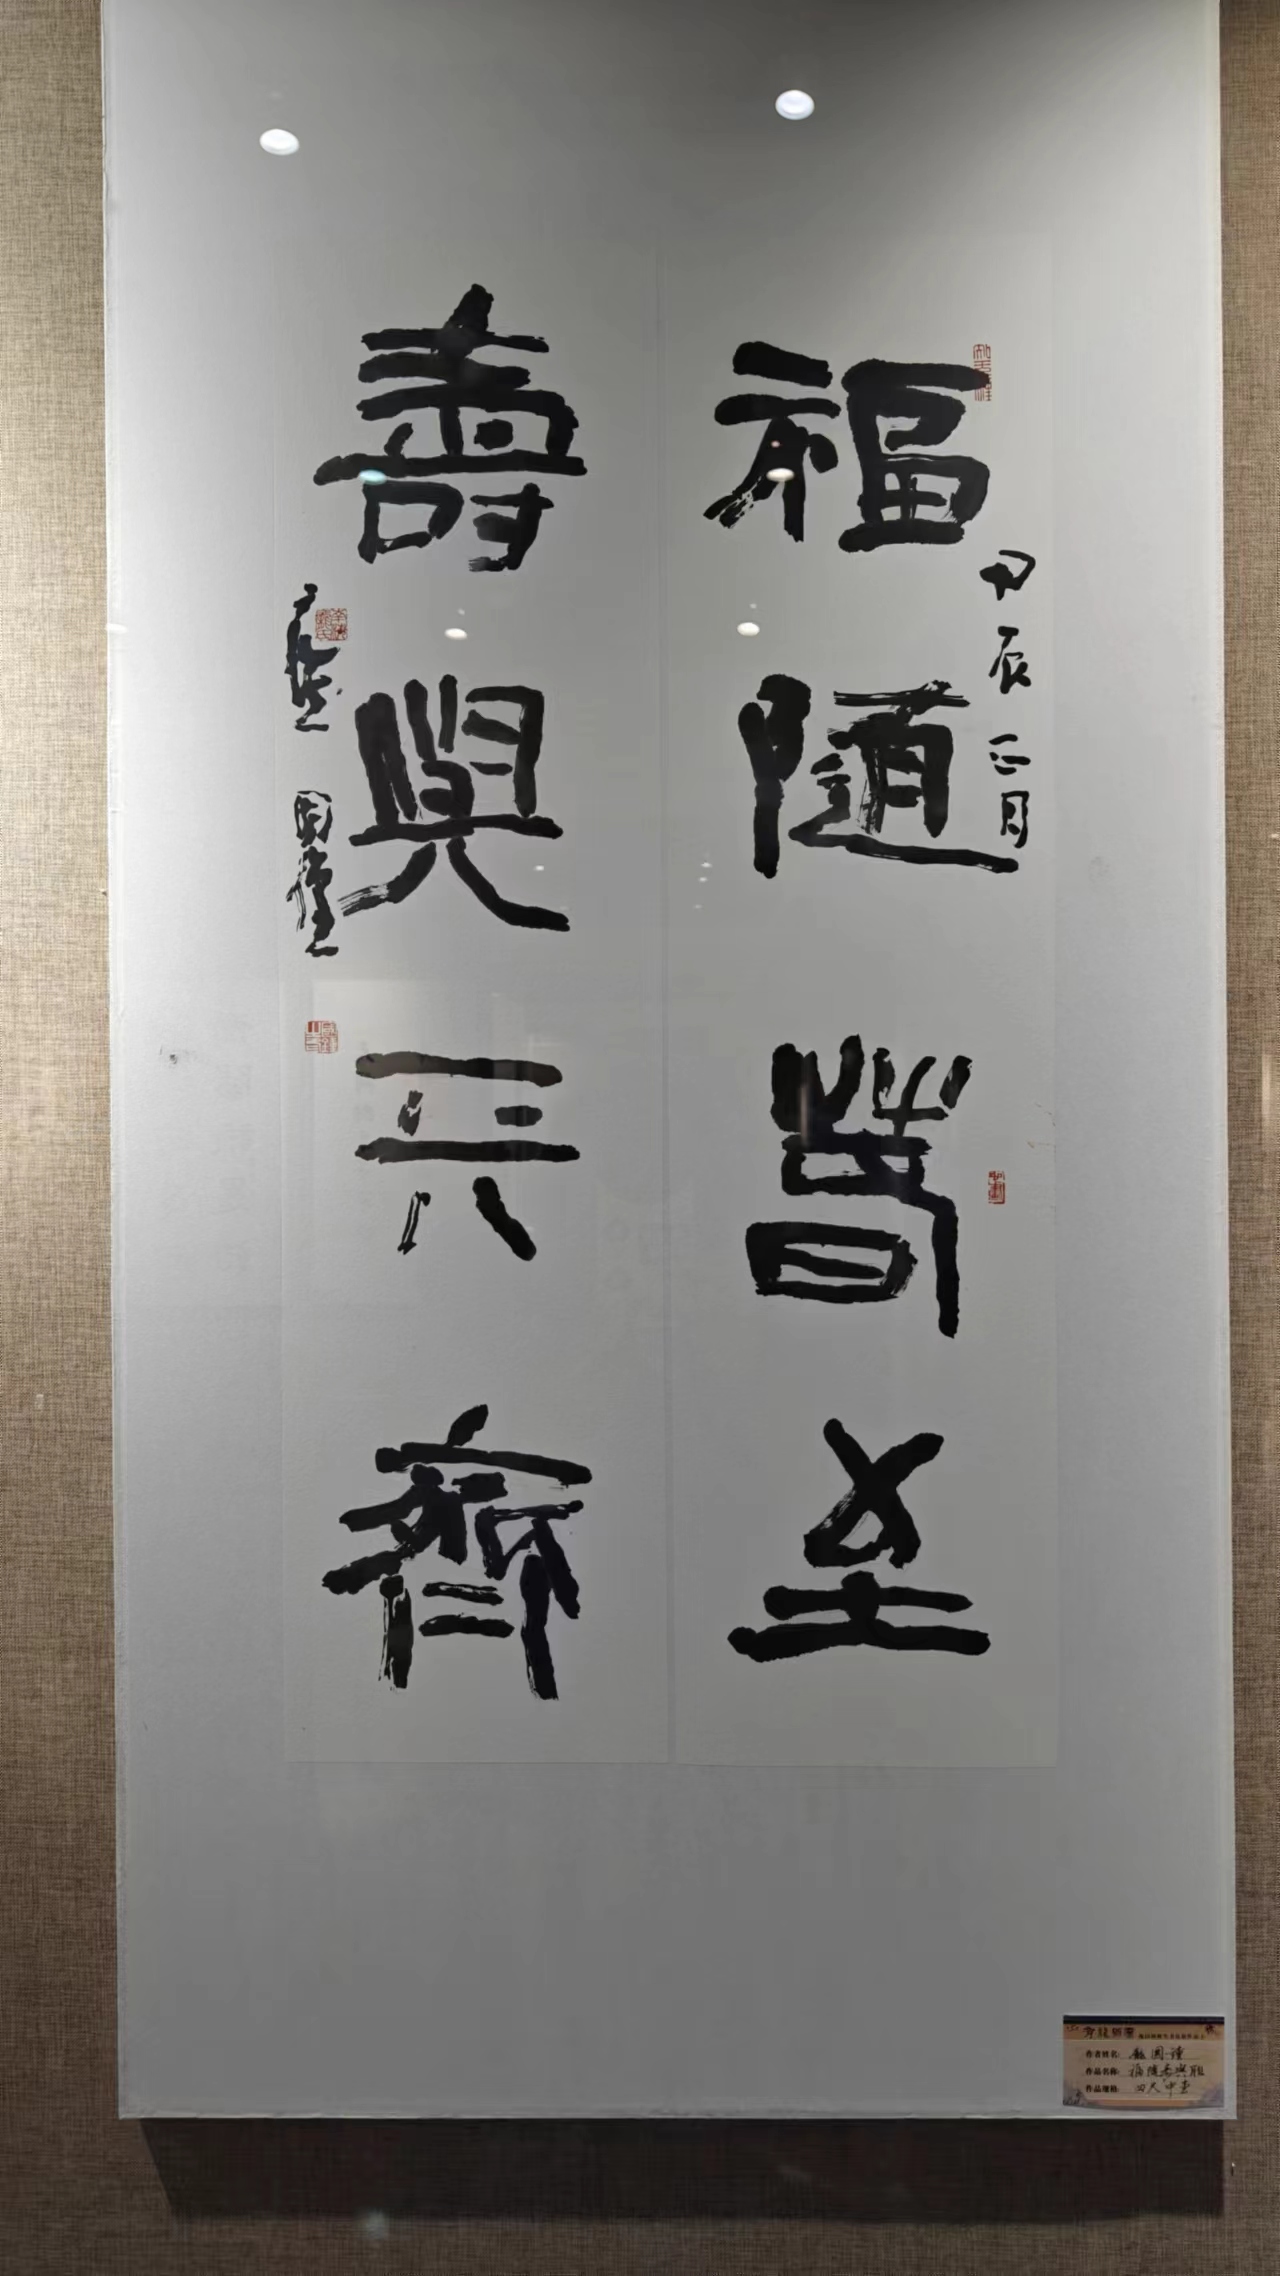 福隨萅至
甲辰正月
壽與天齊
作者姓名:
作品名称: 福隨壽與聯
作品规格: 四尺中堂